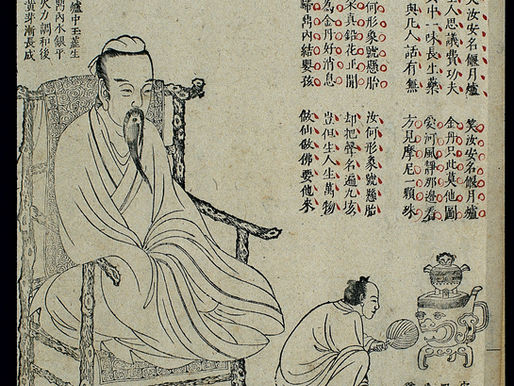 笑汝安名偃月爐
人思議費功夫
中一味長生藥
與凡人話有無
何形象號懸胎
真鉛花正開
為金丹好消息
內結嬰孩
笑汝安名偃月爐
金丹只此莫他圖
愛河風靜那邊看
方見摩尼一顆珠
汝何形象號懸胎
却把聲名遍九垓
豈但生人生萬物
做仙做佛要他來
爐中玉蕊生
內水銀平
火力調和後
黃芽漸長成